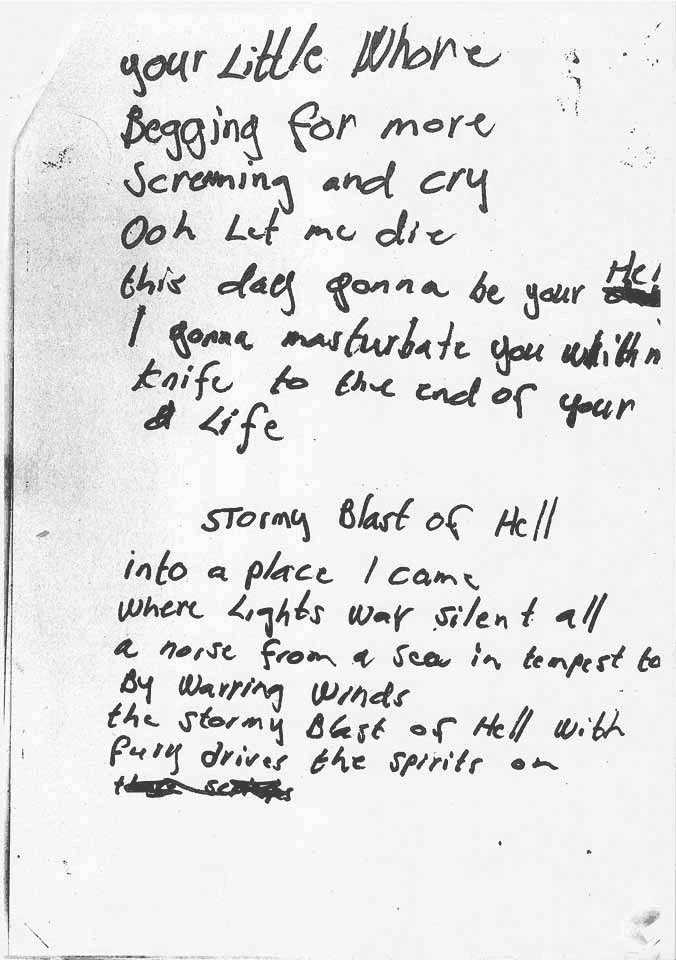 your Little Whore
Begging for more
Screming and cry
Ooh Let me die
this day gonna be your Hel
I gonna masturbate you whith
knife to the end of your
Life
Stormy Blast of Hell
into a place I came
where Lights war silent all
a noise from a sea in tempest to
By Warring Winds
the stormy Blast of Hell with
fury drives the spirits on